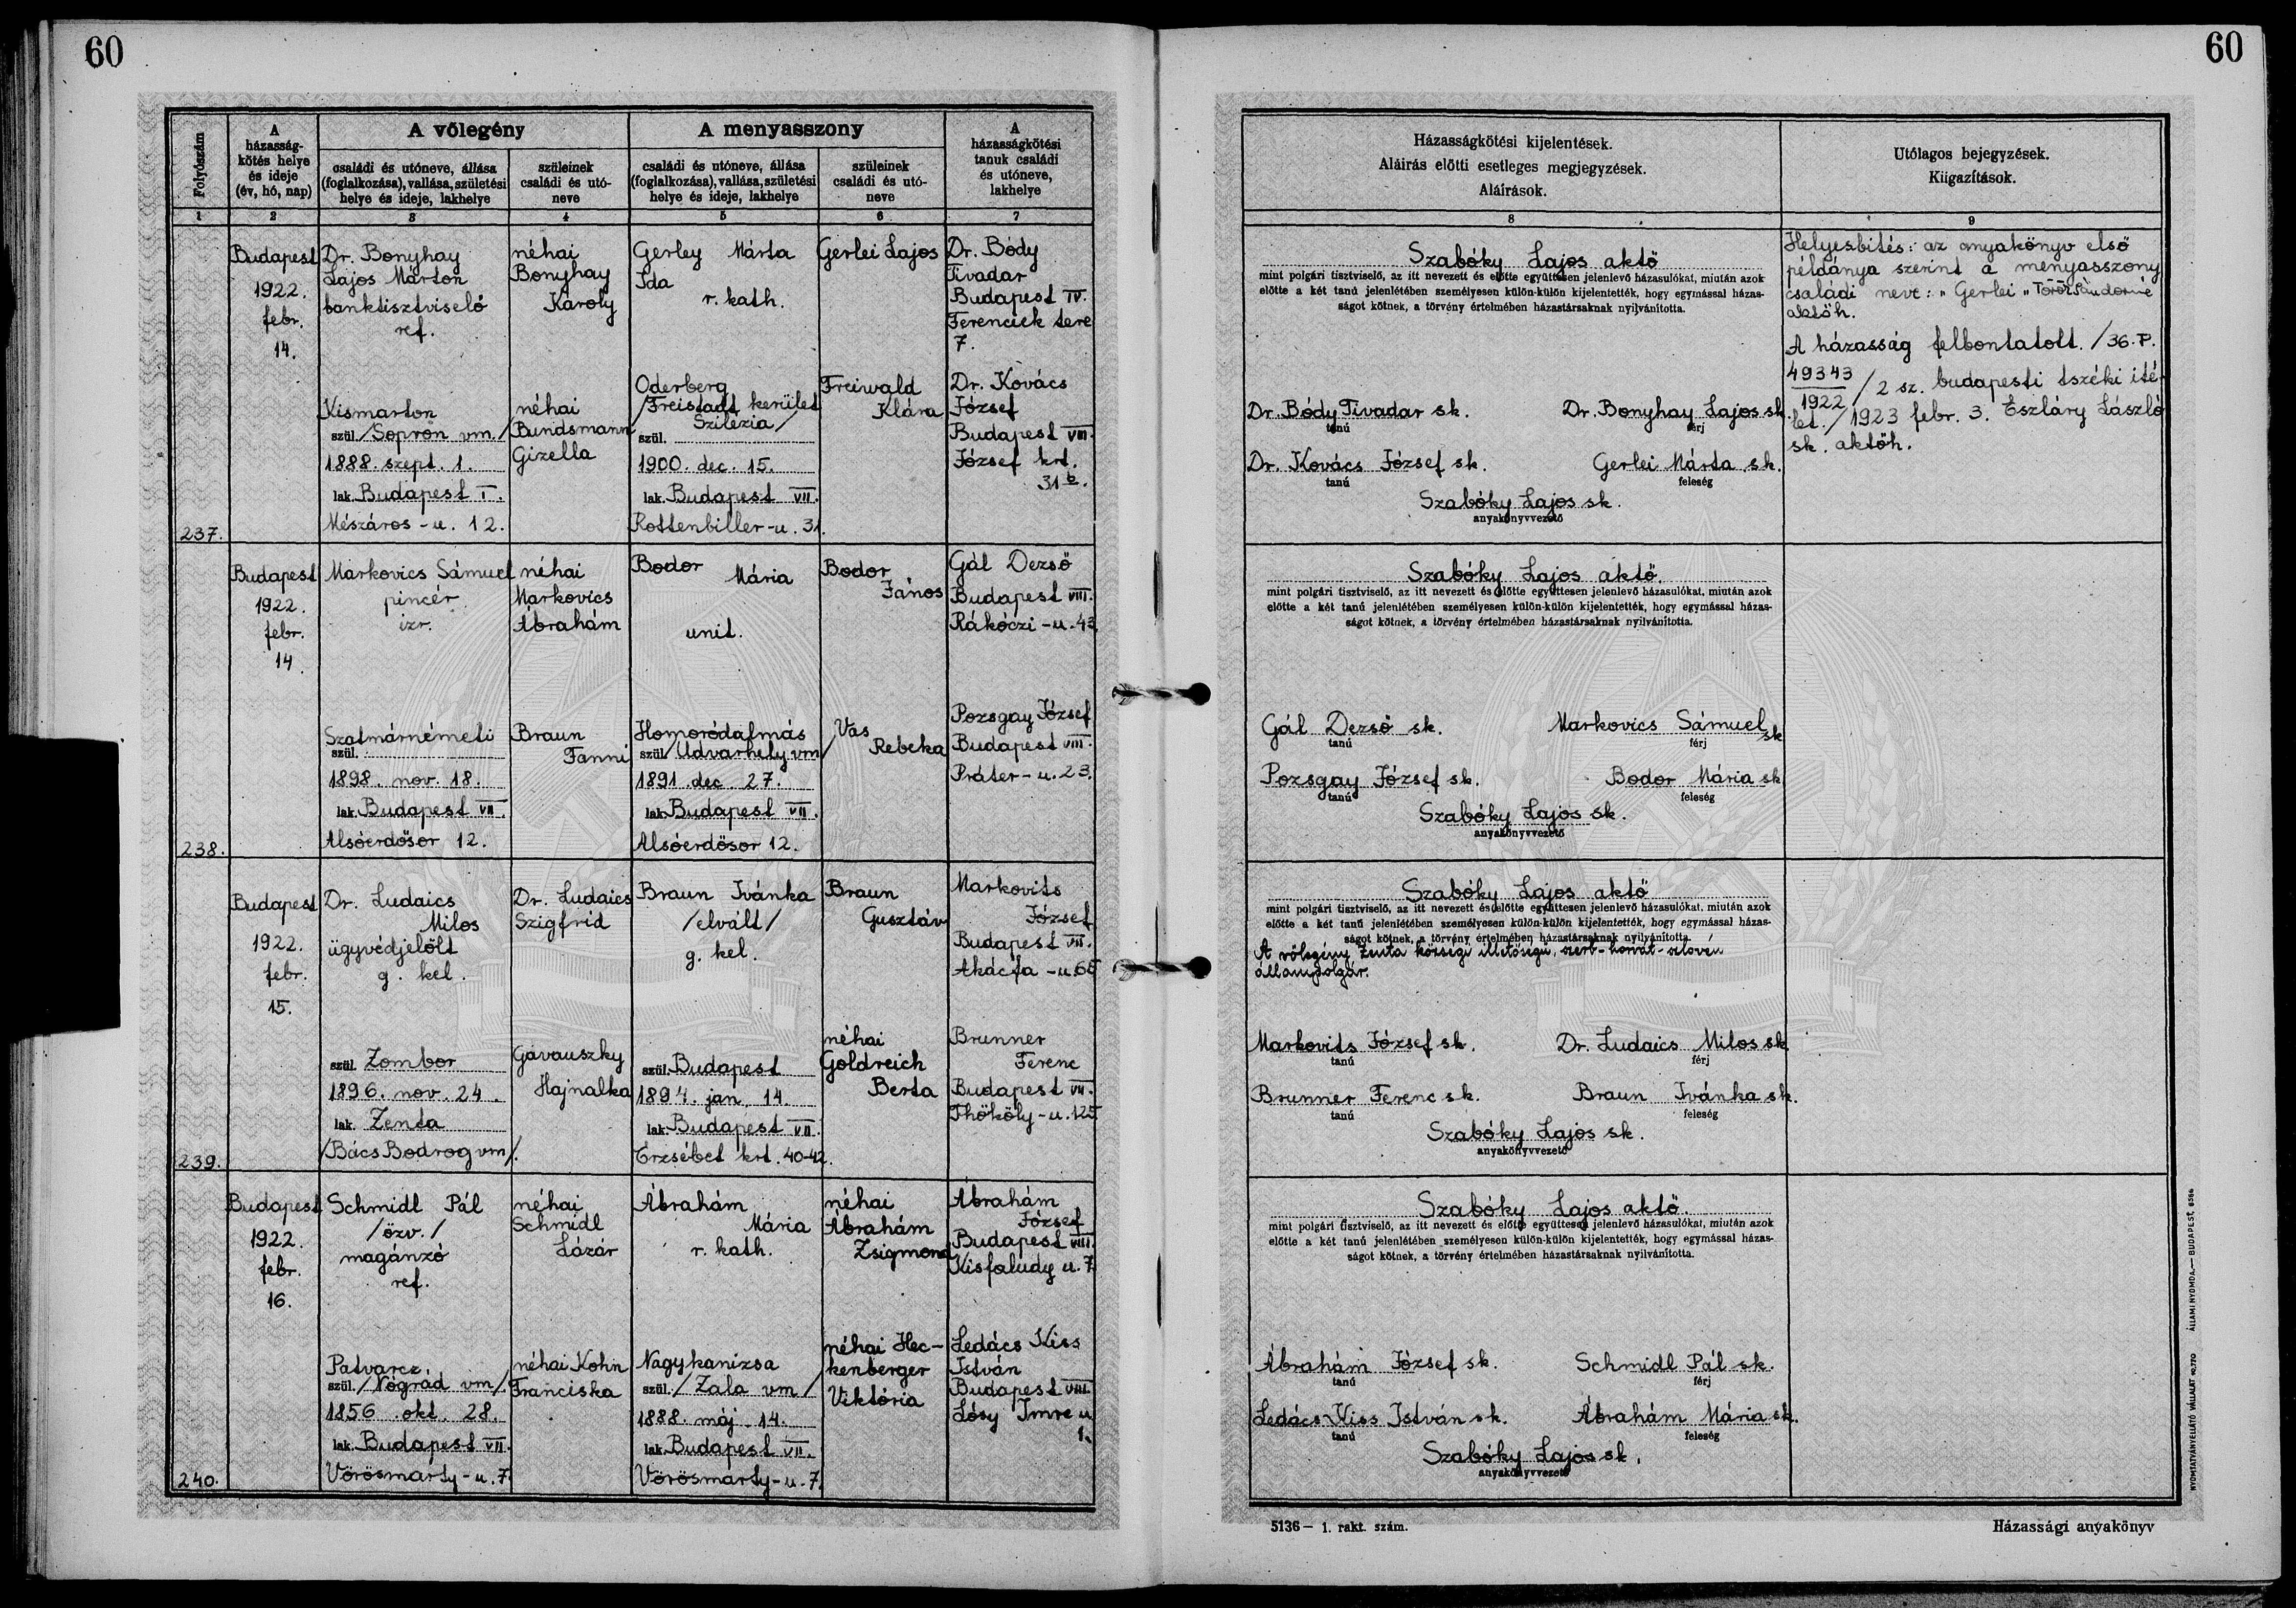 60
60
Folyószám
A
házasság-
kötés helye
és ideje
(év, hó, nap)
A vőlegény
családi és utóneve, állása
(foglalkozása), vallása, születési
helye és ideje, lakhelye
szüleinek
családi és utó-
neve
A menyasszony
családi és utóneve, állása
(foglalkozása), vallása, születési
helye és ideje, lakhelye
szüleinek
családi és utó-
neve
A
házasságkötési
tanuk családi
és utóneve,
lakhelye
1 2 3 4 5 6 7
237.
Budapest
1922.
febr.
14.
Dr. Bonyhay
Lajos Márton
banktisztviselő
ref.
Kismarton
szül. /Sopron vm./
1888. szept. 1.
lak. Budapest I.
Mészáros-u. 12.
néhai
Bonyhay
Károly
néhai
Bundsmann
Gizella
Gerley Márta
Ida
r. kath.
Oderberg
/Freistadt kerület
Szilézia/
szül.
1900. dec. 15.
lak. Budapest VII.
Rottenbiller-u. 31.
Gerlei Lajos
Freiwald
Klára
Dr. Bódy
Tivadar
Budapest IV.
Ferenciek tere
7.
Dr. Kovács
József
Budapest VIII.
József krt.
31 b.
238.
Budapest
1922.
febr.
14
Markovics Sámuel
pincér
izr.
Szatmárnémeti
szül.
1898. nov. 18.
lak. Budapest VII.
Alsóerdősor 12.
néhai
Markovics
Ábrahám
Braun
Fanni
Bodor
Mária
unit.
Homoródalmás
szül. /Udvarhely vm/
1891. dec. 27.
lak. Budapest VII.
Alsóerdősor 12.
Bodor
János
Vas
Rebeka
Gál Dezső
Budapest VIII.
Rákóczi-u. 43.
Pozsgay József
Budapest VIII.
Práter-u. 23.
239.
Budapest
1922.
febr.
15.
Dr. Ludaics
Milos
ügyvédjelölt
g. kel.
szül. Zombor
1896. nov. 24.
lak. Zenta
/Bács Bodrog vm/.
Dr. Ludaics
Szigfrid
Gavauszky
Hajnalka
Braun Ivánka
/elvált/
g. kel.
szül. Budapest
1894. jan. 14.
lak. Budapest VII.
Erzsébet krt. 40-42.
Braun
Gusztáv
néhai
Goldreich
Berta
Markovits
József
Budapest VII.
Akácfa-u.
Brunner
Ferenc
Budapest VII.
Thököly-u. 125
240.
Budapest
1922.
febr.
16.
Schmidl Pál
/özv./
magánzó
ref.
Patvarcz
szül. /Nógrád vm/
1856. okt. 28.
lak. Budapest VII.
Vörösmarty-u. 7.
néhai
Schmidl
Lázár
néhai Kohn
Franciska
Ábrahám
Mária
r. kath.
Nagykanizsa
szül. /Zala vm/
1888. máj. 14.
lak. Budapest VII.
Vörösmarty-u. 7.
néhai
Ábrahám
Zsigmond
néhai Hec-
kenberger
Viktória
Ábrahám
József
Budapest VIII.
Kisfaludy u. 7
Ledács Kiss
István
Budapest VIII.
Lósy Imre u
1.
Házasságkötési kijelentések.
Aláirás előtti esetleges megjegyzések.
Aláírások.
Utólagos bejegyzések.
Kiigazítások.
8 9
Szabóky Lajos aktö
mint polgári tisztviselő, az itt nevezett és előtte együttesen jelenlevő házasulókat, miután azok
előtte a két tanú jelenlétében személyesen külön-külön kijelentették, hogy egymással házas-
ságot kötnek, a törvény értelmében házastársaknak nyilvánította.
Dr. Bódy Tivadar sk. Dr. Bonyhay Lajos sk.
tanú férj
Dr. Kovács József sk. Gerlei Márta sk.
tanú feleség
Szabóky Lajos sk.
anyakönyvvezető
Helyesbítés: az anyakönyv első
példánya szerint a menyasszony
családi neve: "Gerlei" Török Sándorné
aktöh.
A házasság felbontatott. /36. P.
49343
1922 / 2 sz. budapesti tszéki íté-
let. / 1923 febr. 3. Eszláry László
sk. aktöh.
Szabóky Lajos aktö.
mint polgári tisztviselő, az itt nevezett és előtte együttesen jelenlevő házasulókat, miután azok
előtte a két tanú jelenlétében személyesen külön-külön kijelentették, hogy egymással házas-
ságot kötnek, a törvény értelmében házastársaknak nyilvánította.
Gál Dezső sk. Markovics Sámuel sk
tanú férj
Pozsgay József sk. Bodor Mária sk
tanú feleség
Szabóky Lajos sk.
anyakönyvvezető
Szabóky Lajos aktö
mint polgári tisztviselő, az itt nevezett és előtte együttesen jelenlevő házasulókat, miután azok
előtte a két tanú jelenlétében személyesen külön-külön kijelentették, hogy egymással házas-
ságot kötnek, a törvény értelmében házastársaknak nyilvánította.
A vőlegény Zenta községi illetőségű, szerb-horvát-szlovén
állampolgár.
Markovits József sk. Dr. Ludaics Milos sk.
tanú férj
Brunner Ferenc sk. Braun Ivánka sk.
tanú feleség
Szabóky Lajos sk.
anyakönyvvezető
Szabóky Lajos aktö.
mint polgári tisztviselő, az itt nevezett és előtte együttesen jelenlevő házasulókat, miután azok
előtte a két tanú jelenlétében személyesen külön-külön kijelentették, hogy egymással házas-
ságot kötnek, a törvény értelmében házastársaknak nyilvánította.
Ábrahám József sk. Schmidl Pál sk.
tanú férj
Ledács Kiss István sk. Ábrahám Mária sk.
tanú feleség
Szabóky Lajos sk.
anyakönyvvezető
5136 — 1. rakt. szám.
Házassági anyakönyv
NYOMTATVÁNYELLÁTÓ VÁLLALAT ÁLLAMI NYOMDA. — BUDAPEST,